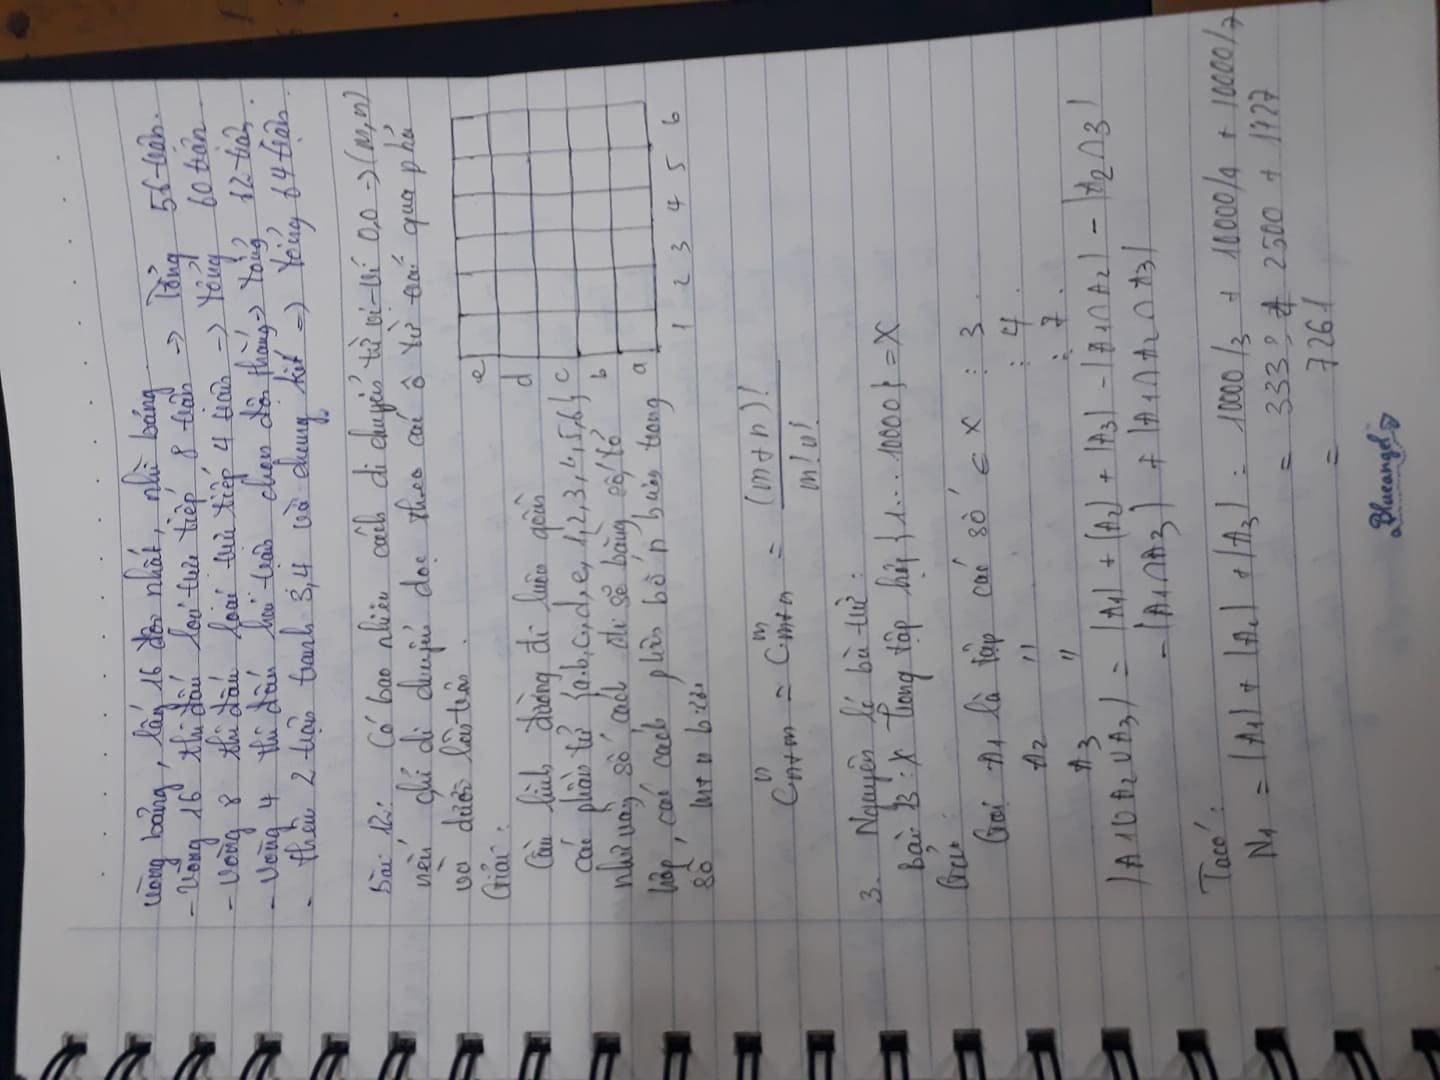 vòng bảng, lấy 16 đội nhất, nhì bảng.
- Vòng 16 thi đấu loại trực tiếp 8 trận -> Tổng 56 trận.
- Vòng 8 thi đấu loại trực tiếp 4 trận -> Tổng 60 trận.
- Vòng 4 thi đấu hai trận chọn đội thắng -> Tổng 12 trận.
- thêm 2 trận tranh 3,4 và chung kết => Tổng 64 trận.
Bài 12: Có bao nhiêu cách di chuyển từ vị trí 0,0 -> (m,n)
nếu chỉ di chuyển dọc theo các ô từ trái qua phải
và dưới lên trên.
Giải:
e
d
c
b
a
1 2 3 4 5 6
Các hình đường đi luôn gồm
các phần tử {a,b,c,d,e,1,2,3,4,5,6};
như vậy số cách đi sẽ bằng số tổ
hợp, các cách phân bố n bước trong
số m+n bước.
C^n_{n+m} = C^m_{m+n} = (m+n)! / m!n!
3. Nguyên lí bù trừ:
Bài 3: X trong tập hợp {1....10000} = X
Giải:
Gọi A1 là tập các số ∈ X : 3.
A2 " : 4.
A3 " : 7.
|A1∪A2∪A3| = |A1| + |A2| + |A3| - |A1∩A2| - |A2∩A3|
- |A1∩A3| + |A1∩A2∩A3|
Ta có:
N1 = |A1| + |A2| + |A3| = 10000/3 + 10000/4 + 10000/7
= 333 + 2500 + 1427
= 7261
Blueangel